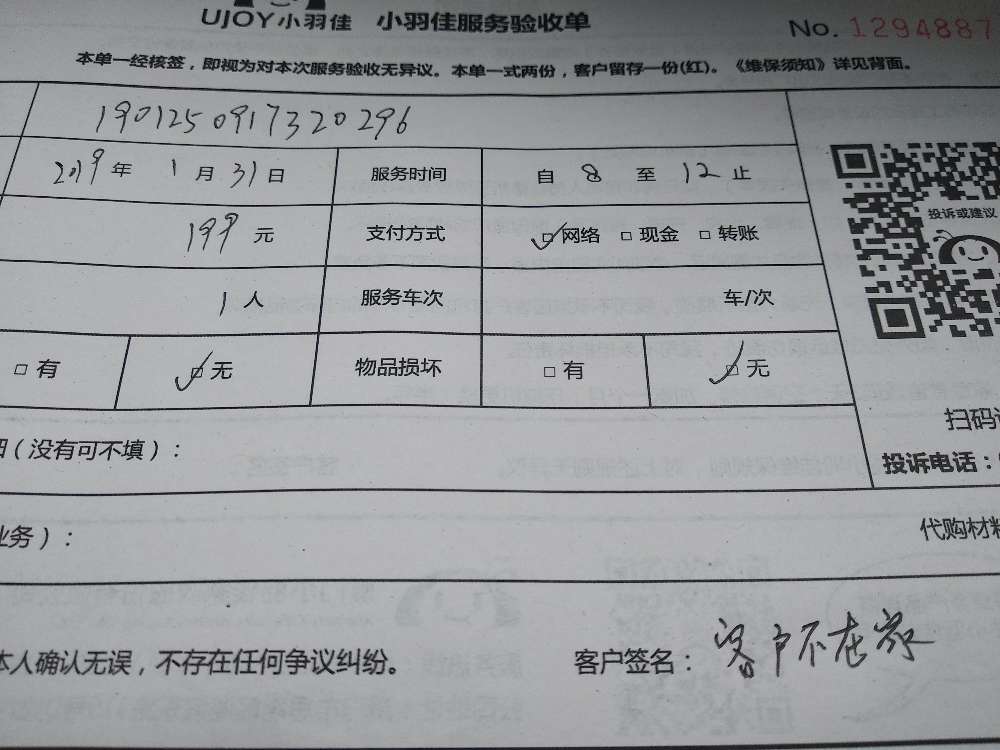 UJOY小羽佳 小羽佳服务验收单 No. 1294887
本单一经核签，即视为对本次服务验收无异议。本单一式两份，客户留存一份(红)。《维保须知》详见背面。
1901250917320296
2019年 1月31日 服务时间 自 8 至 12 止
199 元 支付方式 □网络 □现金 □转账
投诉或建议
1人 服务车次 车/次
□有 □无 物品损坏 □有 □无
（没有可不填）：
扫码
投诉电话：
业务）：
代购材料
本人确认无误，不存在任何争议纠纷。 客户签名：客户不在家